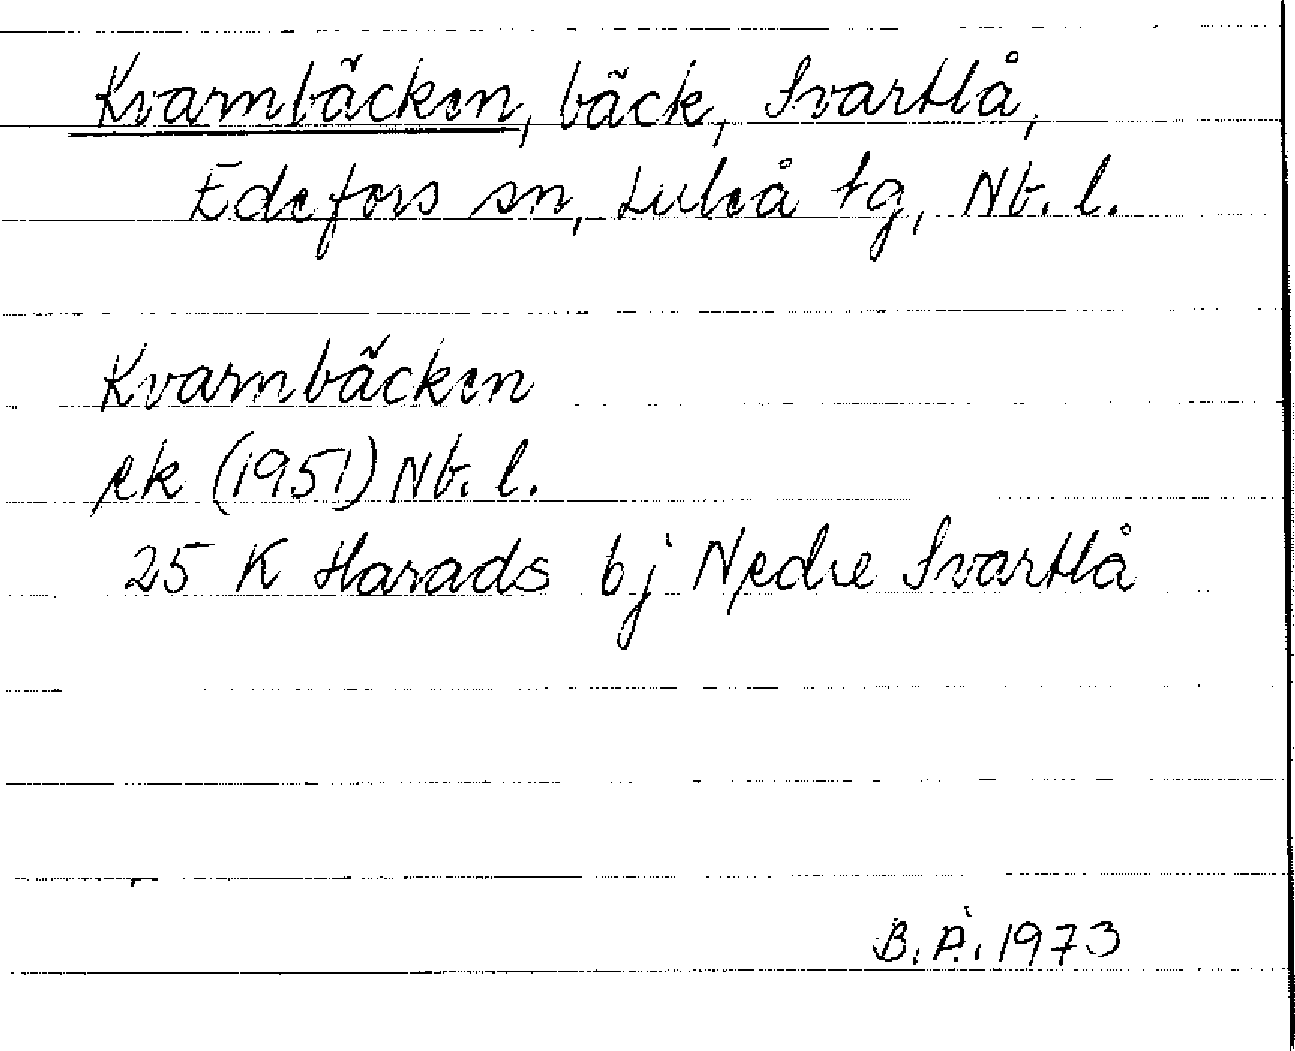 Kvarnbäcken, bäck, Svartlå,
Edefors sn, Luleå tg, Nb. l.
Kvarnbäcken
ek (1951) Nb. l.
25 K Harads bj Nedre Svartlå
B. Å. 1973